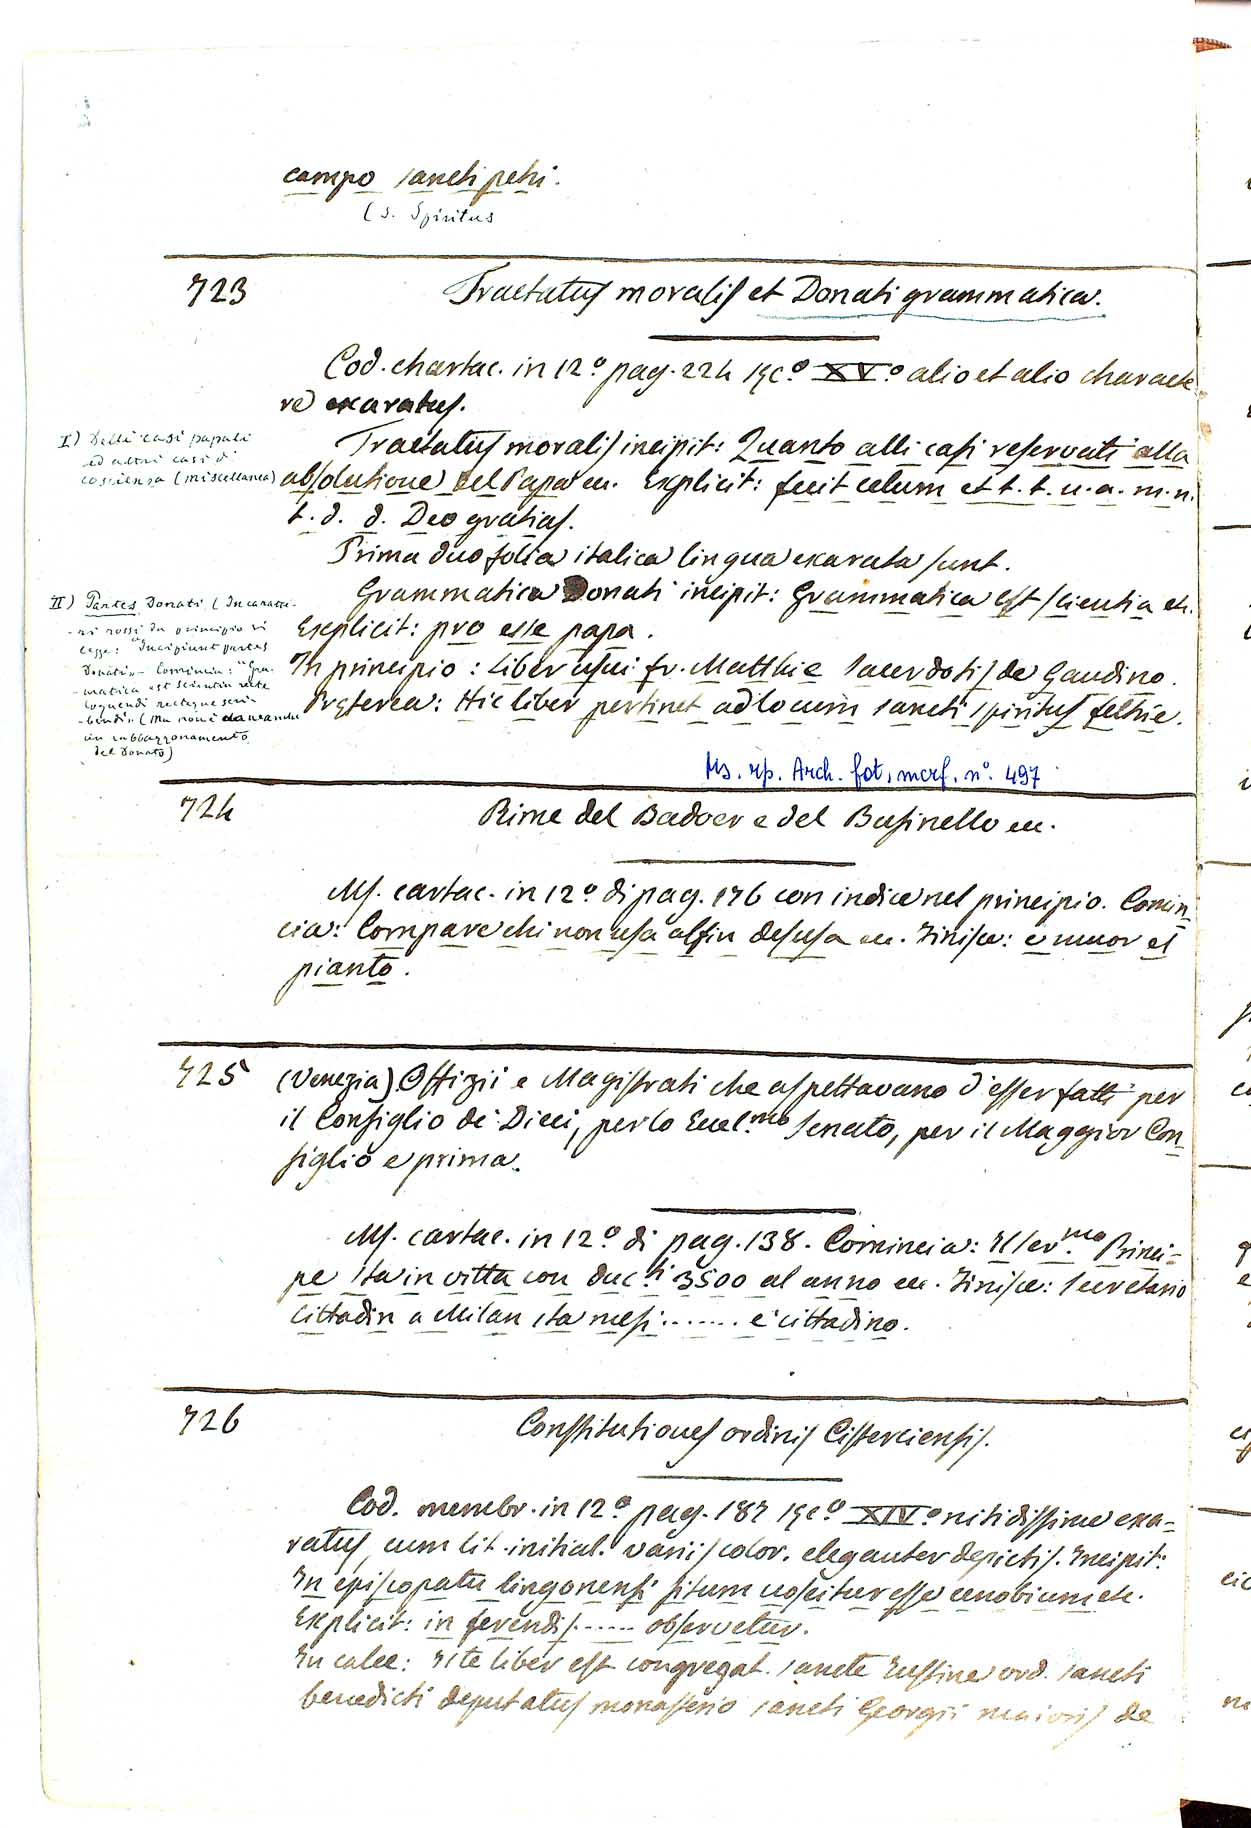 campo sancti petri.
(S. Spiritus
723
Tractatus moralis et Donati grammatica.
Cod. chartac. in 12º pag. 224 sęcº XVº alio et alio characte
re exaratus.
I) Delli casi papali
ed altri casi di
coscienza (miscellanea)
Tractatus moralis incipit: Quanto alli casi reservati alla
absolutione del Papa ec. Explicit: fecit celum et t. t. u. a. m. n.
t. d. d. Deo gratias.
Prima duo folia italica lingua exarata sunt.
II) Partes Donati (In caratte-
-ri rossi da principio si
legge: "Incipiunt partes
Donati" - Comincia: "Gra-
-matica est scientia recte
loquendi recteque scri-
-bendi" (Ma non è
un rabbazzonamento
del Donato)
Grammatica Donati incipit: Grammatica est scientia etc.
Explicit: pro esse papa.
In principio: liber usui fr. Matthie sacerdotis de Gandino.
Pręterea: Hic liber pertinet ad locum sancti spiritus feltrie.
Ms. rip. Arch. fot. mcrf. nº. 497
724
Rime del Badoer e del Businello ec.
Ms. cartac. in 12º di pag. 176 con indice nel principio. Comin
cia: Compare chi non usa alfin desusa ec. Finisce: e muor el
pianto.
725
(Venezia) Offizii e Magistrati che aspettavano d'esser fatti per
il Consiglio de' Dieci, per lo Eccel.mo Senato, per il Maggior Con
siglio e prima.
Ms. cartac. in 12º di pag. 138. Comincia: Il ser.mo Princi=
pe sta in vitta con duc.ti 3500 al anno ec. Finisce: Secretario
Cittadin a Milan sta mesi ....... e' cittadino.
726
Constitutiones ordinis Cisterciensis.
Cod. membr. in 12º pag. 187 sęcº XIVº nitidissime exa=
ratus, cum lit. initial. variis color. eleganter depictis. Incipit:
In episcopatu lingonensi situm noscitur esse cenobium etc.
Explicit: in ferendis ...... observetur.
In calce: Iste liber est congregat. sancte Iustine ord. sancti
benedicti deputatus monasterio sancti Georgii maioris de